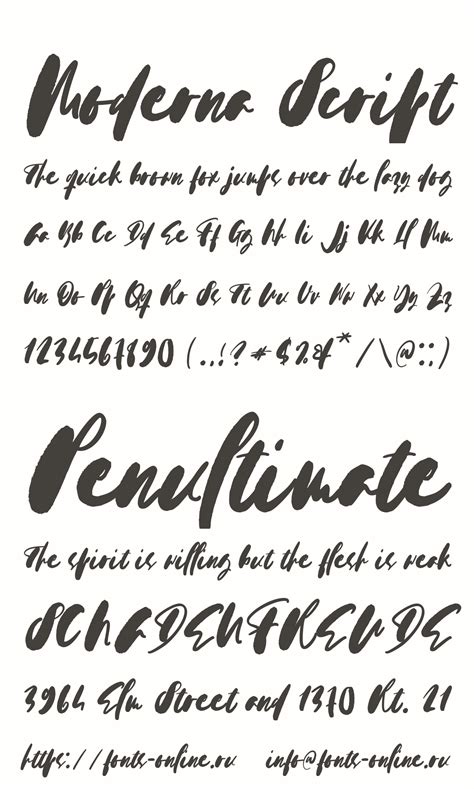 Moderna Script
The quick brown fox jumps over the lazy dog
Aa Bb Cc Dd Ee Ff Gg Hh Ii Jj Kk Ll Mm
Nn Oo Pp Qq Rr Ss Tt Uu Vv Ww Xx Yy Zz
1234567890 (..!? * $ % & * / \ @ : ;)
Penultimate
The spirit is willing but the flesh is weak
SCHADENFREUDE
3964 Elm Street and 1370 Rt. 21
https://fonts-online.ru info@fonts-online.ru